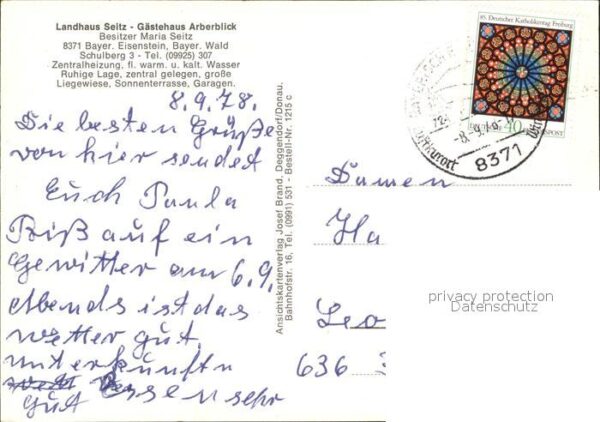 Landhaus Seitz - Gästehaus Arberblick
Besitzer Maria Seitz
8371 Bayer. Eisenstein, Bayer. Wald
Schulberg 3 - Tel. (09925) 307
Zentralheizung, fl. warm. u. kalt. Wasser
Ruhige Lage, zentral gelegen, große
Liegewiese, Sonnenterrasse, Garagen.
8.9.78.
Die besten Grüße
von hier sendet
Euch Paula
Biß auf ein
Gewitter am 6.9.
Abends ist das
Wetter gut.
Unterkunftn
Gut Essen sehr
Ansichtskartenverlag Josef Brand, Deggendorf/Donau.
Bahnhofstr. 16, Tel. (0991) 531 - Bestell-Nr. 1215 c
85. Deutscher Katholikentag Freiburg
40
Luftkurort
8371
Damen
Ha
Leo
636
privacy protection
Datenschutz